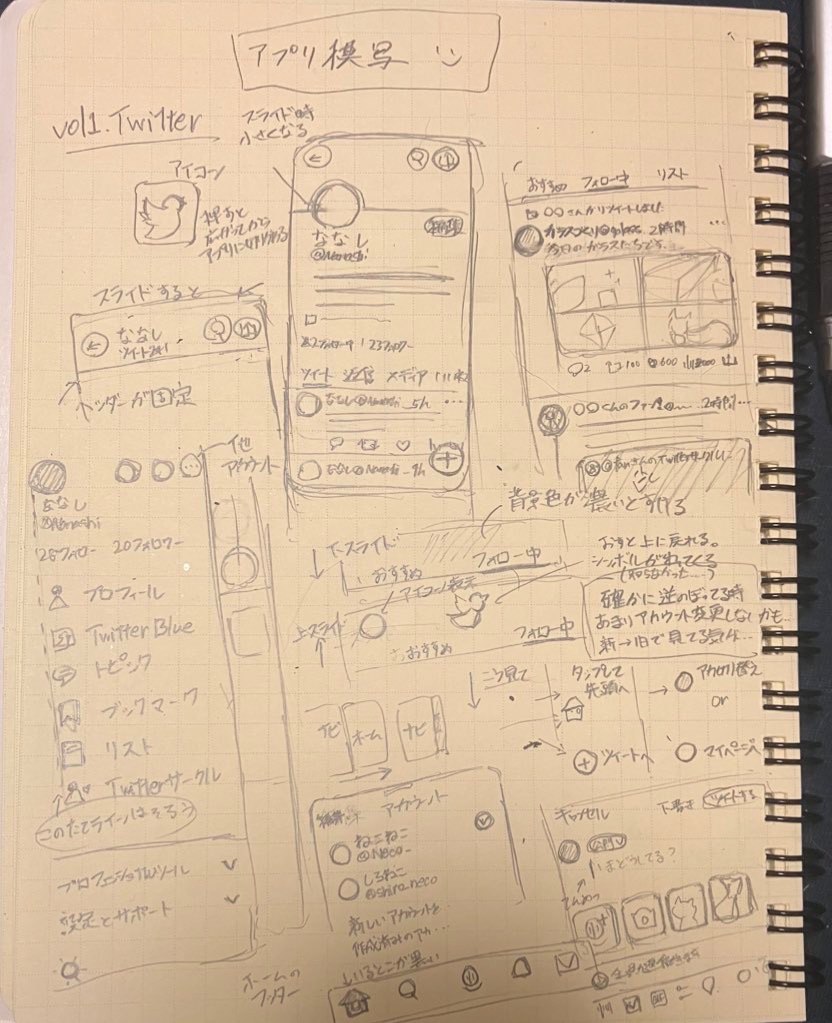 アプリ模写
vol1.Twitter
スライド時
小さくなる
アイコン
押すと
広がってから
アプリに切り替わる
スライドすると
ななし
ヘッダーが固定
ななし
@Nanashi
ツイート 返信 メディア いいね
ななし@Nanashi 5h
ななし@Nanashi 9h
おすすめ フォロー中 リスト
〇〇さんがリツイートしました
2時間
今日のガラスたちです。
2 100 600
2時間
他
アカウント
ななし
@Nanashi
20フォロワー
プロフィール
Twitter Blue
トピック
ブックマーク
リスト
Twitterサークル
このたてラインはそろう
プロフェショナルツール
設定とサポート
背景色が濃いとすける
下スライド
おすすめ フォロー中
アイコン表示
上スライド
おすすめ フォロー中
おすと上に戻れる。
シンボルがおりてくる
(知らなかった……)
確かに逆のぼってる時
あまりアカウント変更しないかも…
新→旧で見てる気が…
ナビ ホーム ナビ
こう見て
タップして
先頭へ
アカ切り替え
or
ツイートへ
マイページへ
アカウント
ねこねこ
@Neco_
しろねこ
@shiro_neco
新しいアカウントを…
作成済みのアカ…
ホームの
フッター
キャンセル 下書き ツイートする
公開
いまどうしてる?